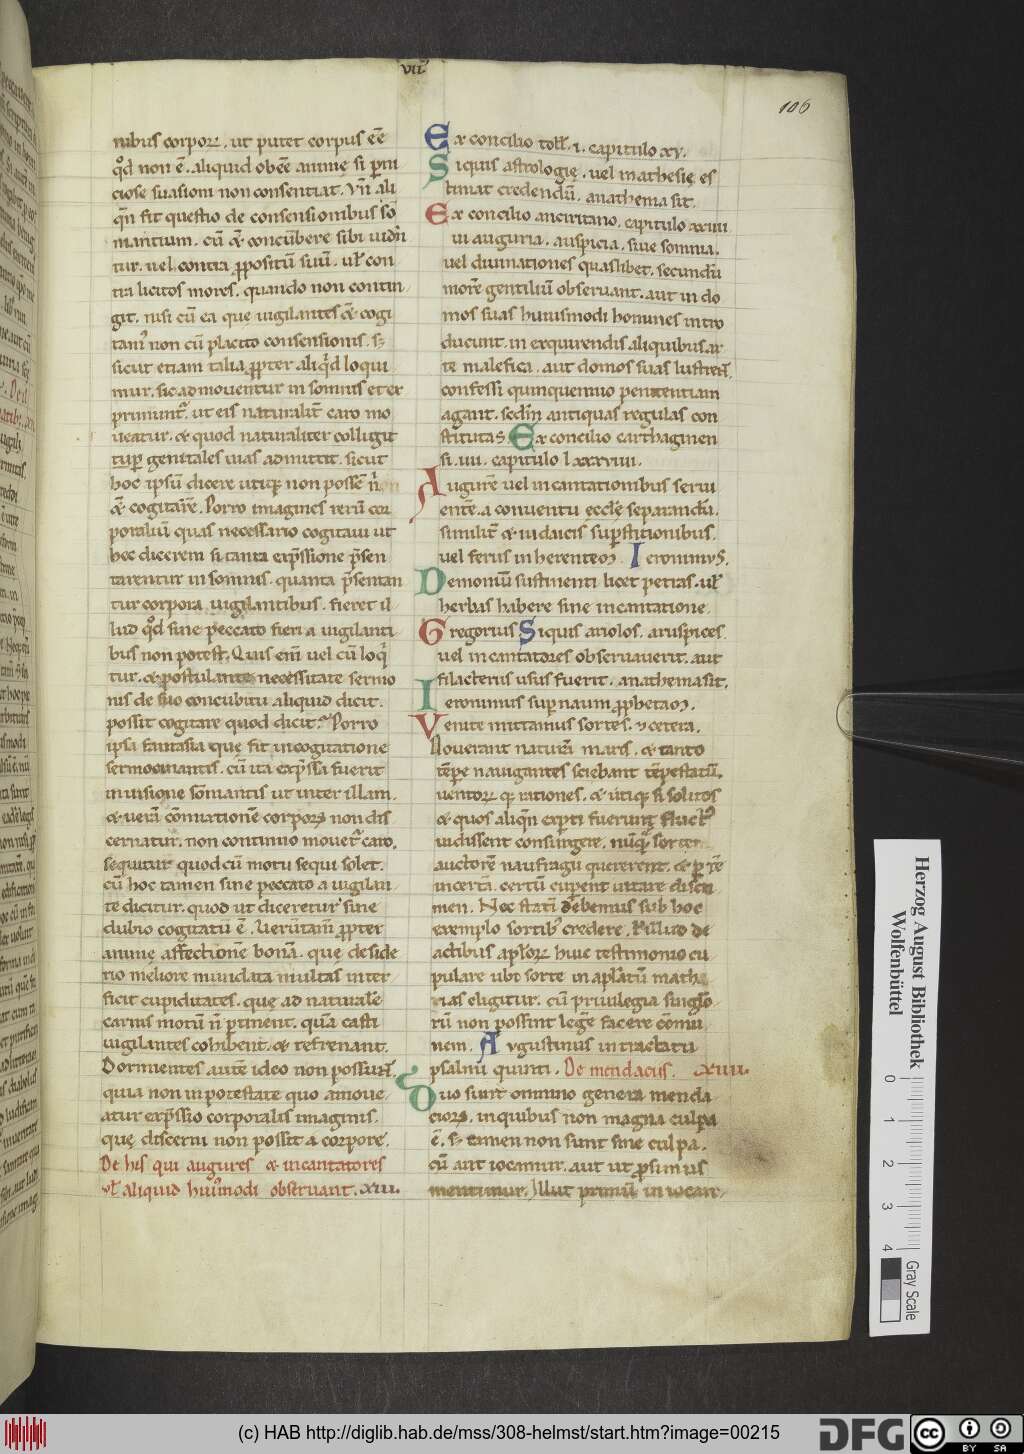 VII
106
nibus corpoꝝ. ut putet corpus eē
qđ non ē. aliquid obeē animę si ꝑni
ciose suasioni non consentiat. Vn̄ ali
qn̄ fit questio de consensionibus sō
niantium. cū & concūbere sibi uidn̄
tur. uel contra ꝓpositū suū. uł con
tra licitos mores. quando non contin
git. nisi cū ea que uigilantes & cogi
tam᾽ non cū placito consensionis. s;
sicut etiam talia ꝓpter aliq̇d loqui
mur. sic admouentur in somnis et ex
primunt᾽. ut eis naturalit̄ caro mo
ueatur. & quod naturaliter colligit
tuꝑ genitales uias admittit. sicut
hoc ipsū dicere utiqꝫ non possē n̄
& cogitarē. Porro imagines rerū cor
poraliū quas necessario cogitaui ut
hec dicerem si tanta exp̄ssione p̄sen
tarentur in somnis. quanta p̄sentan
tur corpora uigilantibus. fieret il
lud qđ sine peccato fieri a uigilanti
bus non potest. Quis eni᷒ uel cū loq̇
tur. & postulante necessitate sermo
nis de suo concubitu aliquid dicit.
possit cogitare quod dicit? Porro
ipsa fantasia que fit in cogitatione
sermocinantis. cū ita exp̄ssa fuerit
in uisione sōmiantis ut inter illam.
& uerā cōmixtionē corpoꝝ non dis
cernatur. non continuo mouet᾽ caro.
sequitur quod cū motū sequi solet.
cū hoc tamen sine peccato a uigilan
te dicitur. quod ut diceretur sine
dubio cogitatū ē. Uerūtam̄ ꝓpter
animę affectionē bonā. que deside
rio meliore mundata multas inter
ficit cupiditates. que ad naturalē
carnis motū n̄ ꝑtinent. quā casti
uigilantes cohibent. & refrenant.
Dormientes autē ideo non possunt.
quia non in potestate quo amoue
atur exp̄ssio corporalis imaginis.
que discerni non possit a corpore.
De his qui augures & incantatores
uł aliquid hui᾽modi obseruant. XIII.
Ex concilio toll̄. i. capitulo xv.
Siquis astrologię. uel mathesię es
timat credendū. anathema sit.
Ex concilio anciritano. capitulo xxiiii
ui auguria. auspicia. siue somnia.
uel diuinationes quaslibet. secundū
morē gentiliū obseruant. aut in do
mos suas huiusmodi homines intro
ducunt. in exquirendis aliquibus ar
te malefica. aut domos suas lustrent.
confessi quinquennio penitentiam
agant. scdm̄ antiquas regulas con
stitutas. Ex concilio carthaginen
si. iiii. capitulo lxxxviiii.
Augure uel incantationibus serui
entē. a conuentu ecclę separandū.
similit̄ & iudaicis suꝑstitionibus.
uel feriis inherenteꝫ. Ieronimus.
Demoniū sustinenti licet petras. uł
herbas habere sine incantatione.
Gregorius Siquis ariolos. aruspices.
uel incantatores obseruauerit. aut
filacteriis usus fuerit. anathema sit.
Ieronimus suꝑ naum ꝓphetaꝫ.
Venite mittamus sortes. & cetera.
Nouerant naturā maris. & tanto
tēpe nauigantes sciebant tēpestatū.
uentoꝝ qꝫ rationes. & utiqꝫ si solitos
& quos aliqn̄ exꝑti fuerunt fluct᾽
uidissent consurgere. nūqꝫ sorte
auctorē naufragii quererent. & ꝑ rē
incertā. certū cuꝑent uitare discri
men. Nec statī debemus sub hoc
exemplo sortib᾽ credere. Uł illud de
actibus aplōꝝ huic testimonio co
pulare ubi sorte in aplatū mathi
tias eligitur. cū priuilegia singlo
rū non possint legē facere cōmu
nem. Augustinus in tractatu
psalmi quinti. De mendaciis. XIIII.
Duo sunt omnino genera menda
cioꝝ. in quibus non magna culpa
ē. s; tamen non sunt sine culpa.
cū aut iocamur. aut ut ꝓsimus
mentimur. Illut primū in iocan
Herzog August Bibliothek
Wolfenbüttel
0 1 2 3 4
Gray Scale
(c) HAB http://diglib.hab.de/mss/308-helmst/start.htm?image=00215
DFG
cc BY SA